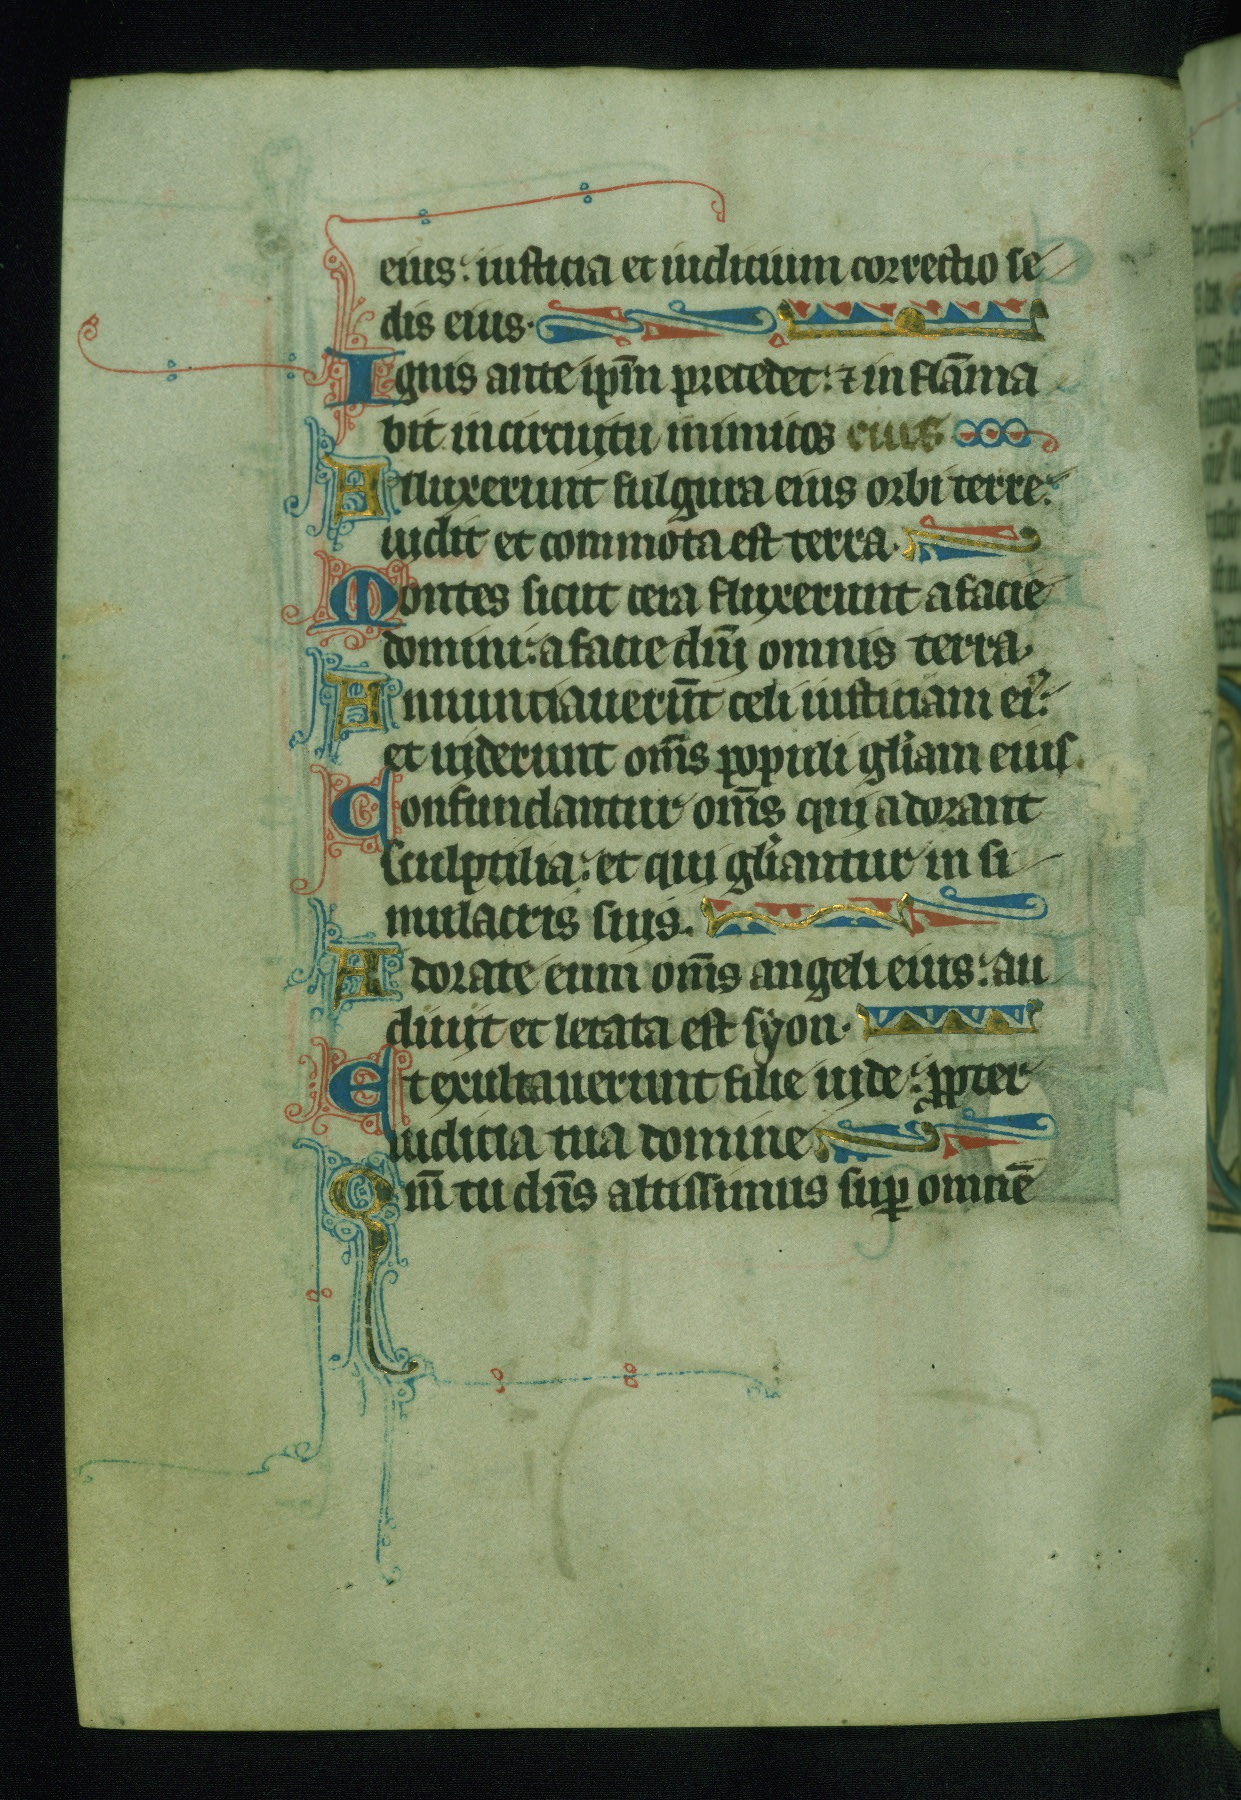 eius: iusticia et iudicium correctio se
dis eius.
Ignis ante ip̄m precedet: ⁊ inflāma
bit in circuitu inimicos eius
Alluxerunt fulgura eius orbi terre:
uidit et commota est terra.
Montes sicut cera fluxerunt a facie
domini: a facie dn̄i omnis terra.
Annunciauerūt celi iusticiam ei᷒:
et uiderunt om̄s populi gl̄iam eius.
Confundantur om̄s qui adorant
sculptilia: et qui gl̄iantur in si
mulacris suis.
Adorate eum om̄s angeli eius: au
diuit et letata est syon.
Et exultauerunt filie iude: ꝓpter
iudicia tua domine
Qm̄ tu dn̄s altissimus suꝑ omnē